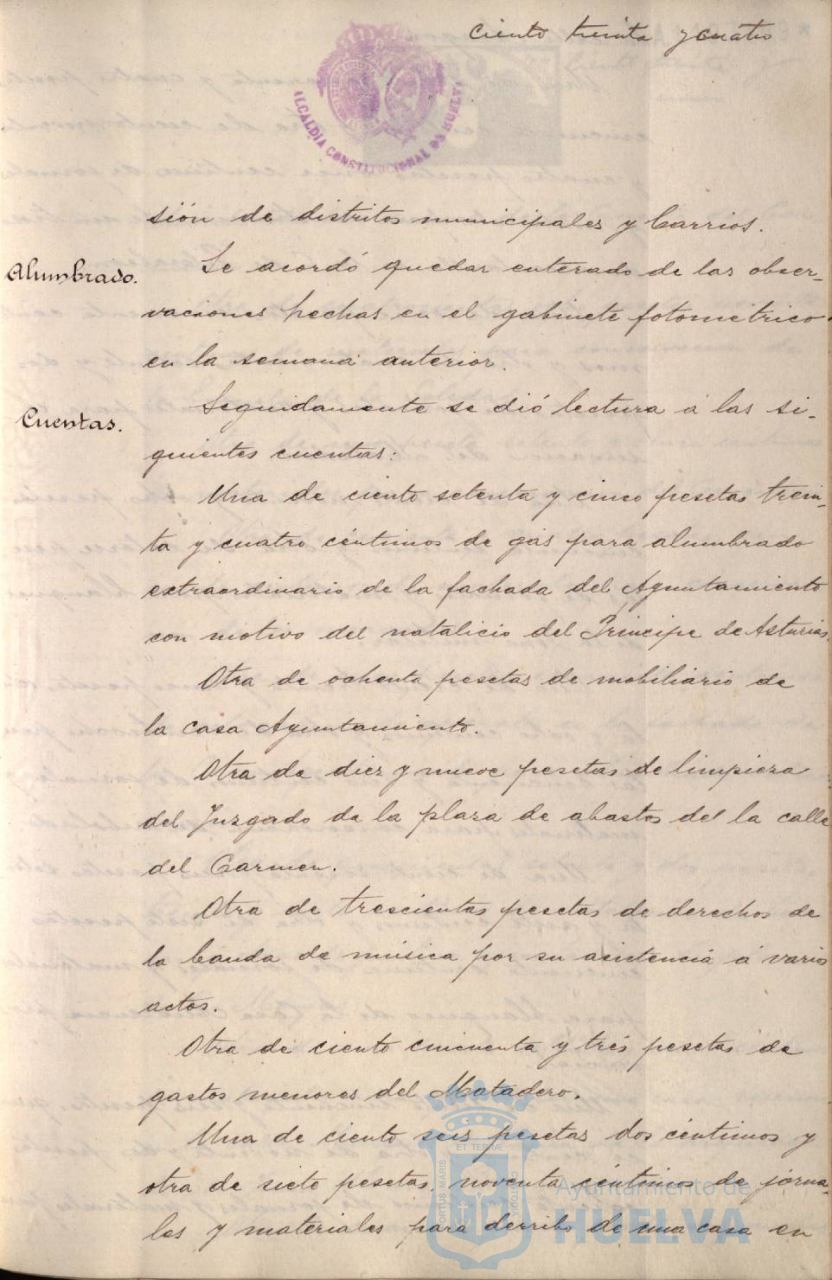 ciento treinta y cuatro
ALCALDÍA CONSTITUCIONAL DE HUELVA
sión de distritos municipales y barrios.
Alumbrado.
Se acordó quedar enterado de las obser-
vaciones hechas en el gabinete fotométrico
en la semana anterior.
Cuentas.
Seguidamente se dió lectura á las si-
guientes cuentas:
Una de ciento setenta y cinco pesetas trein-
ta y cuatro céntimos de gas para alumbrado
extraordinario de la fachada del Ayuntamiento
con motivo del natalicio del Príncipe de Asturias.
Otra de ochenta pesetas de mobiliario de
la casa Ayuntamiento.
Otra de diez y nueve pesetas de limpieza
del Juzgado de la plaza de abastos del la calle
del Carmen.
Otra de trescientas pesetas de derechos de
la banda de música por su asistencia á varios
actos.
Otra de ciento cincuenta y tres pesetas de
gastos menores del Matadero.
Una de ciento seis pesetas dos céntimos y
otra de siete pesetas, noventa céntimos de jorna-
les y materiales para derribo de una casa en
PORTUS MARIS ET TERRAE CUSTODIA
Ayuntamiento de
HUELVA